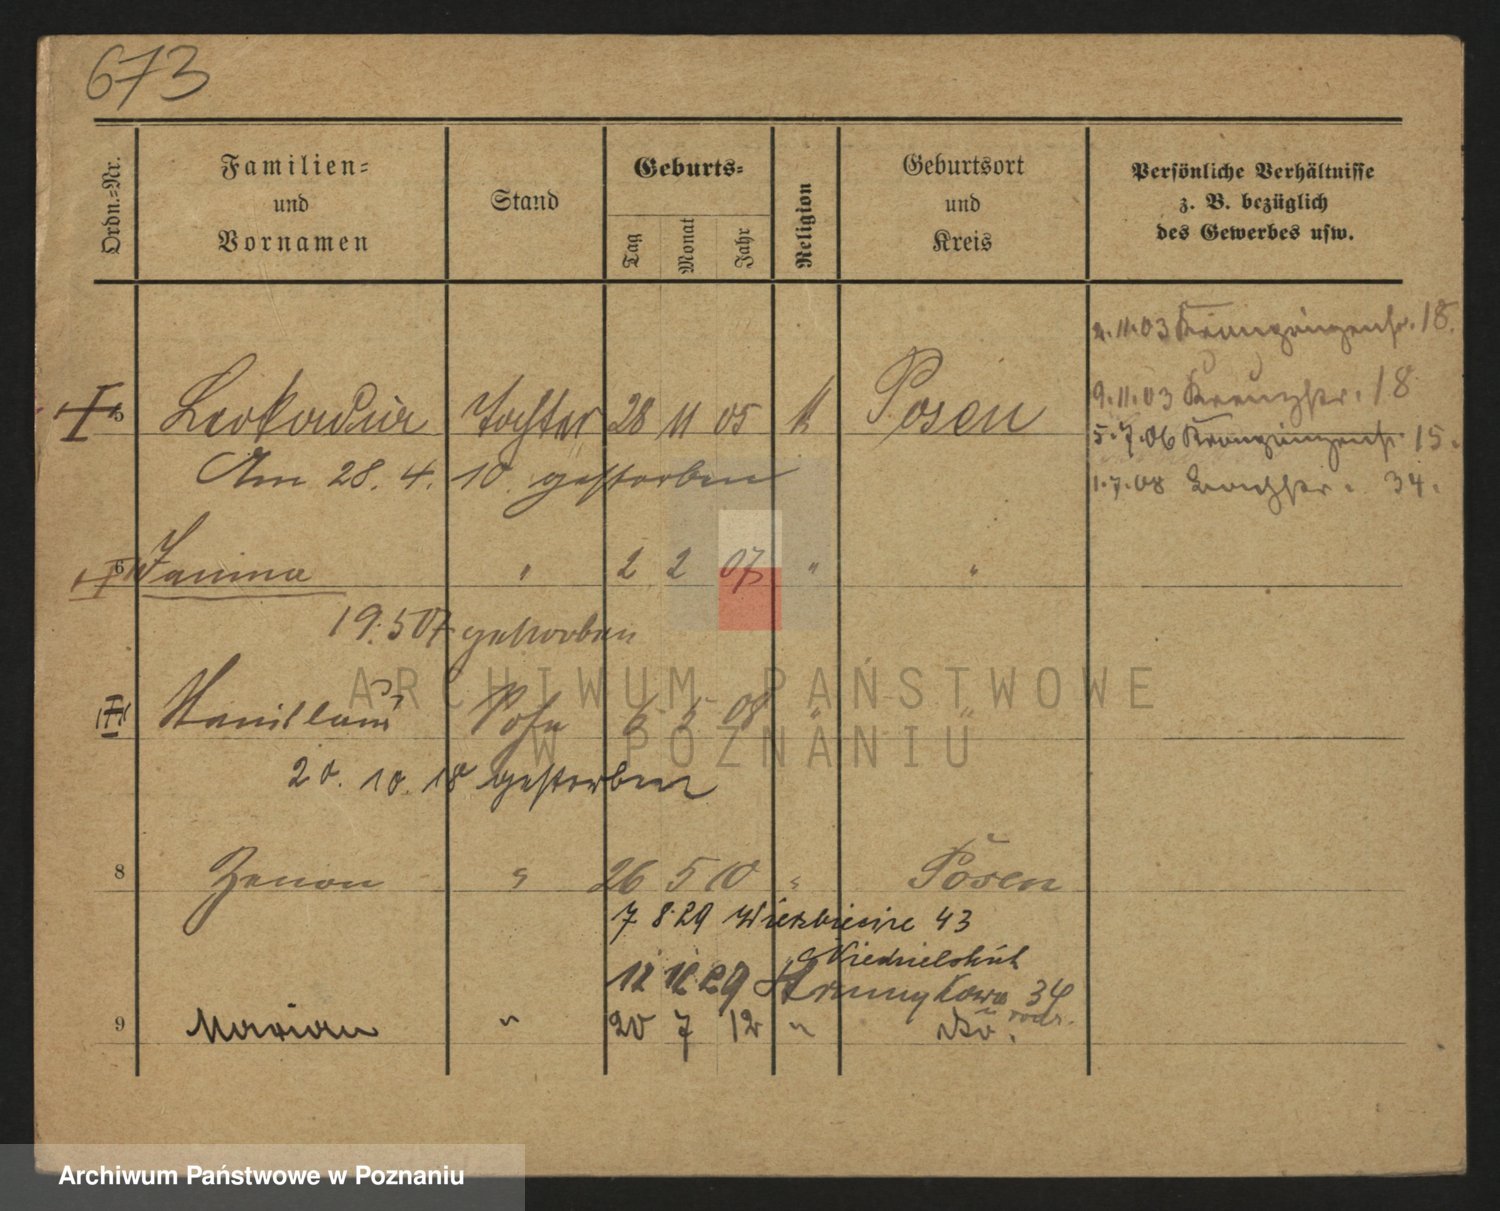 673
Ordn.=Nr.
Familien=
und
Vornamen
Stand
Geburts=
Tag
Monat
Jahr
Religion
Geburtsort
und
Kreis
Persönliche Verhältnisse
z. B. bezüglich
des Gewerbes usw.
2.11.03 18.
9.11.03 Kreuzstr. 18
5 Leokadia Tochter 28 11 05 k Posen
5.7.06 15.
Am 28. 4. 10. gestorben
1.7.08 34.
6 Janina " 2 2 07 " "
19.5 07 gestorben
Stanislaus Sohn 6 5 08 " "
20. 10. 18 gestorben
8 Zenon " 26 5 10 " Posen
7 8.29 43
12 12 29 34
9 Marian " 20 7 12 "
ARCHIWUM PAŃSTWOWE
W POZNANIU
Archiwum Państwowe w Poznaniu